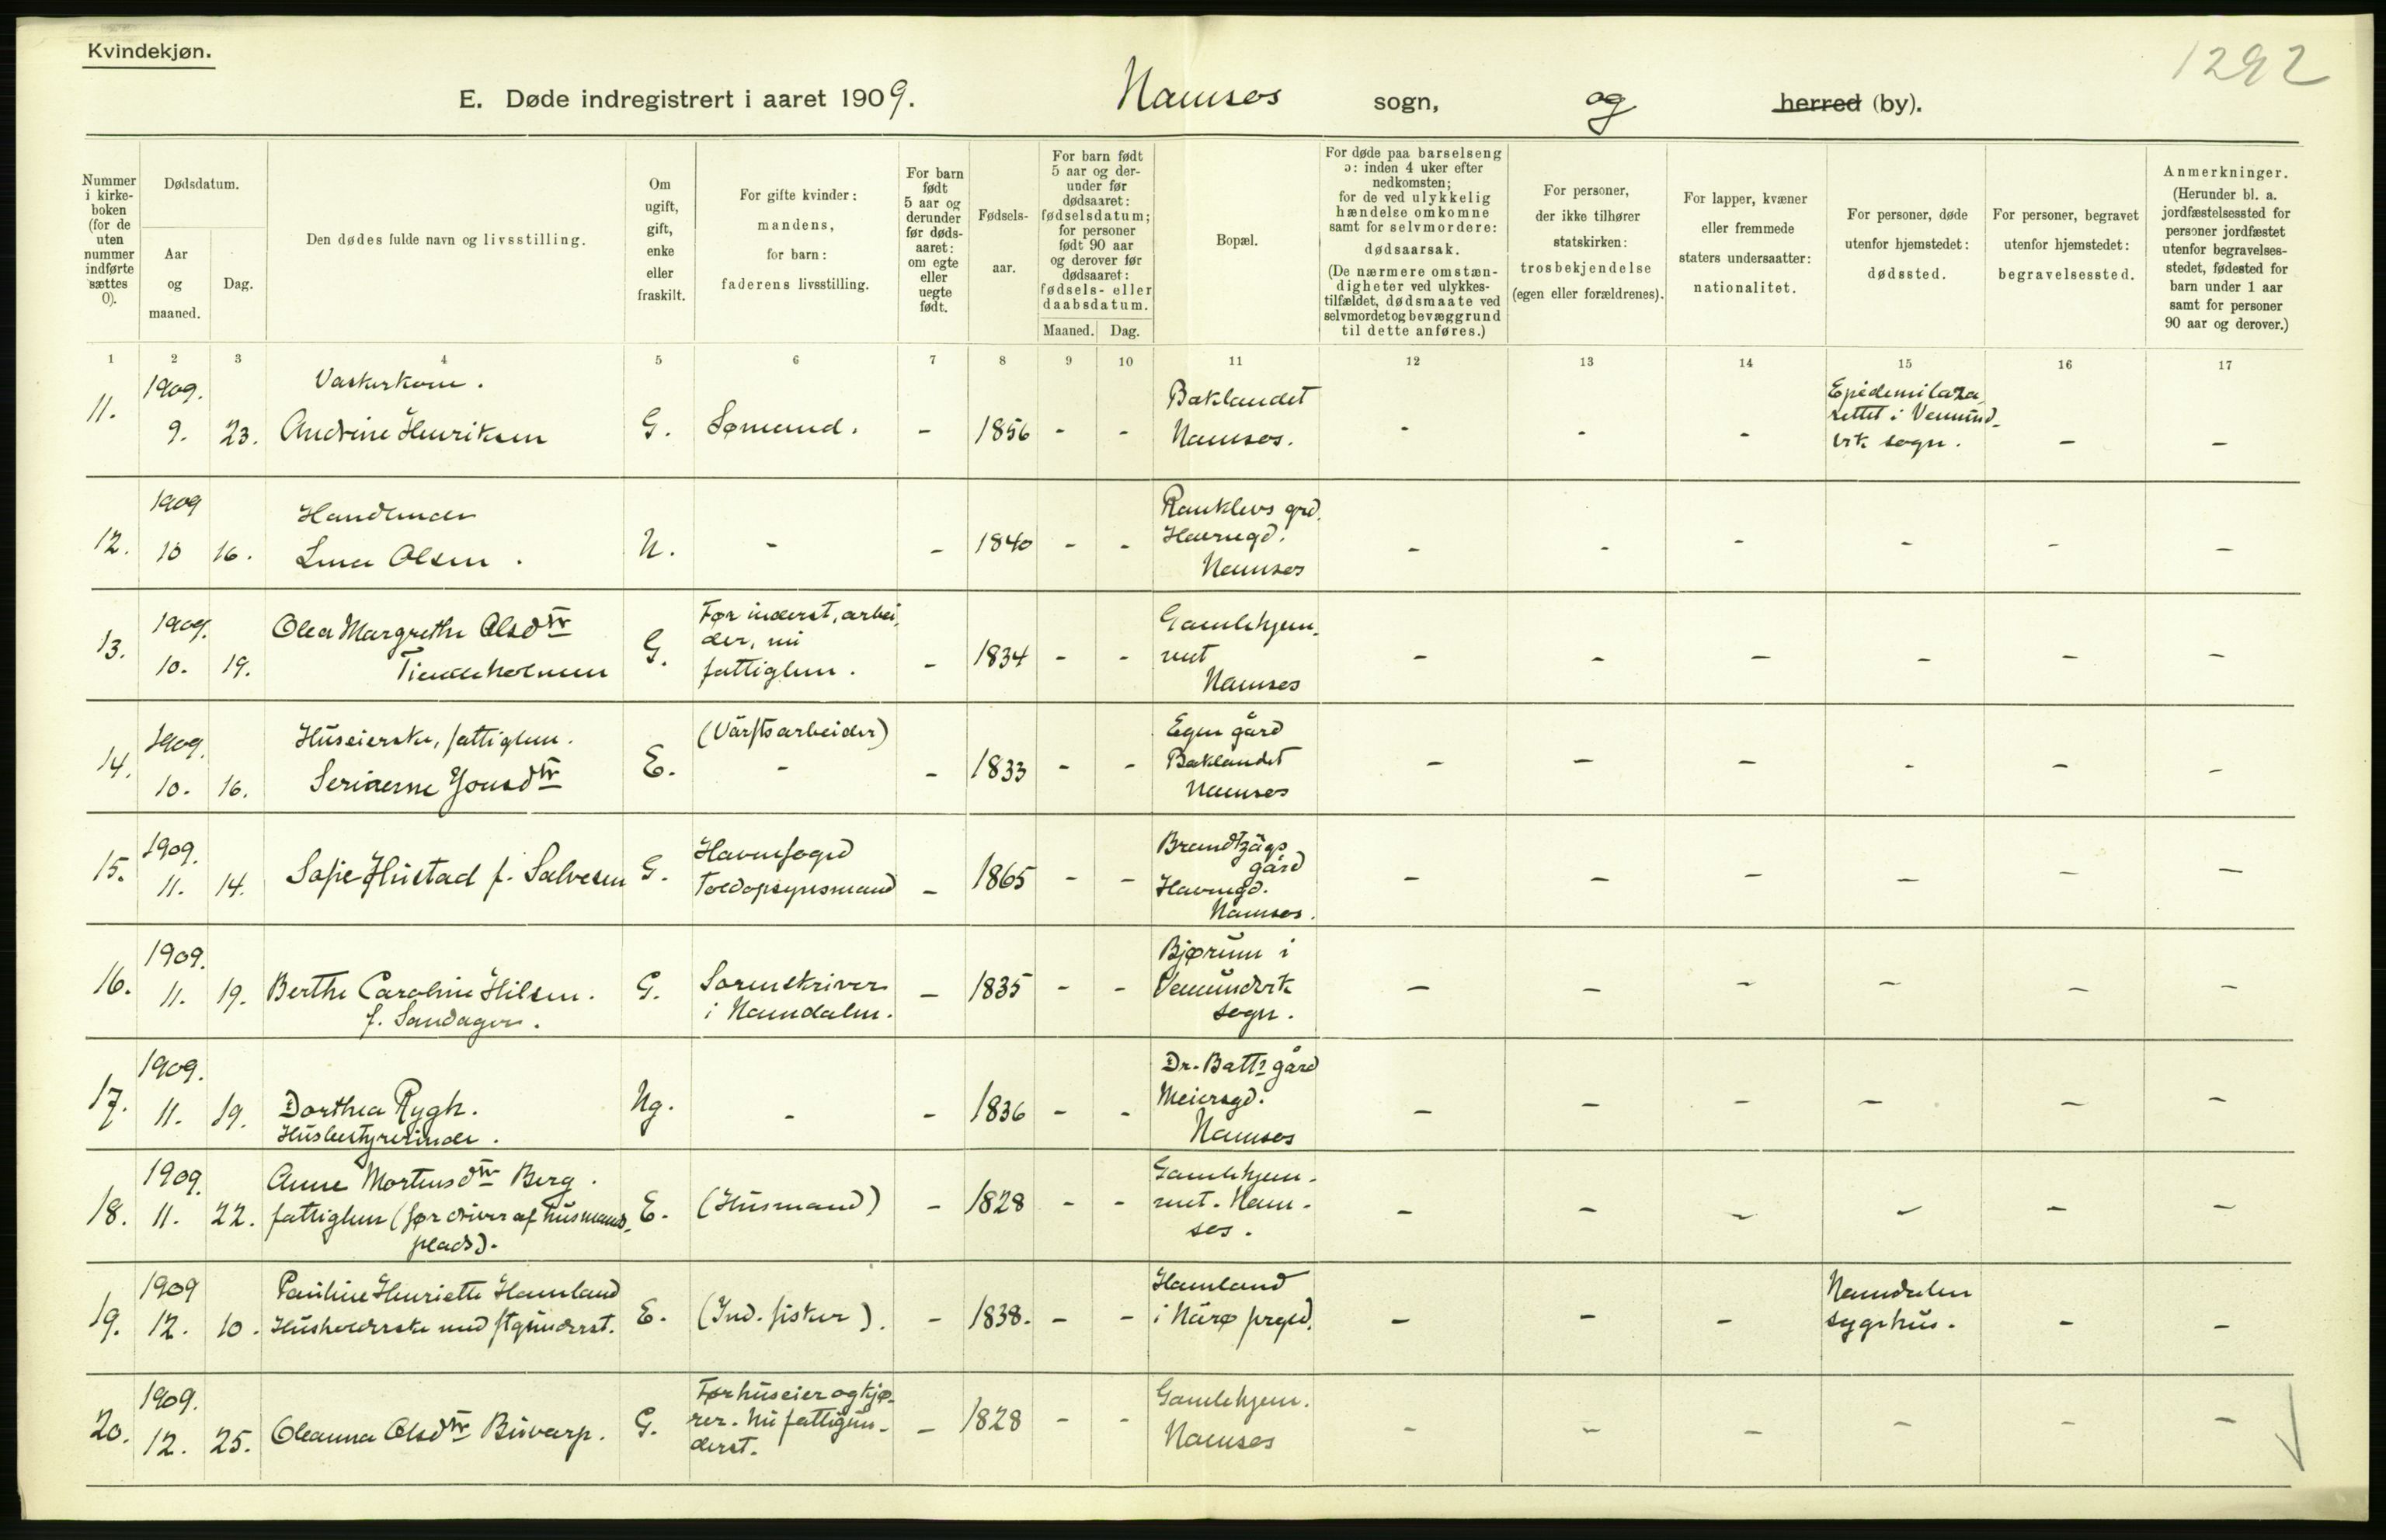 Kvindekjøn.
1292
E. Døde indregistrert i aaret 1909. Namsos sogn, og herred (by).
Nummer i kirke-boken (for de uten nummer indførte sættes 0).
Dødsdatum.
Aar og maaned.
Dag.
Den dødes fulde navn og livsstilling.
Om ugift, gift, enke eller fraskilt.
For gifte kvinder: mandens, for barn: faderens livsstilling.
For barn født 5 aar og derunder før døds-aaret: om egte eller uegte født.
Fødsels-aar.
For barn født 5 aar og der-under før dødsaaret: fødselsdatum; for personer født 90 aar og derover før dødsaaret: fødsels- eller daabsdatum.
Maaned. Dag.
Bopæl.
For døde paa barselseng ɔ: inden 4 uker efter nedkomsten; for de ved ulykkelig hændelse omkomne samt for selvmordere: dødsaarsak. (De nærmere omstæn-digheter ved ulykkes-tilfældet, dødsmaate ved selvmordet og bevæggrund til dette anføres.)
For personer, der ikke tilhører statskirken: trosbekjendelse (egen eller forældrenes).
For lapper, kvæner eller fremmede staters undersaatter: nationalitet.
For personer, døde utenfor hjemstedet: dødssted.
For personer, begravet utenfor hjemstedet: begravelsessted.
Anmerkninger. (Herunder bl. a. jordfæstelsessted for personer jordfæstet utenfor begravelses-stedet, fødested for barn under 1 aar samt for personer 90 aar og derover.)
1 2 3 4 5 6 7 8 9 10 11 12 13 14 15 16 17
11. 1909. 9. 23. Vaskerkone. Andrine Henriksen G. Sømand. - 1856 - - Baklandet Namsos. - - - Epidemilaza-rettet i Vemund-vik sogn. - -
12. 1909 10 16. Handlende Lina Olsen. U. - - 1840 - - Ranklevs grd. Havnegd. Namsos - - - - - -
13. 1909. 10. 19. Olea Margrethe Olsdtr Tiendeholmen G. Før inderst, arbei-der, nu fattiglem. - 1834 - - Gamlehjem-met Namsos - - - - - -
14. 1909. 10. 16. Huseierske, fattiglem. Serianne Jonsdtr E. (Värftsarbeider) - - 1833 - - Egen gård Baklandet Namsos - - - - - -
15. 1909. 11. 14. Sofie Hustad f. Salvesen G. Havnefoged Toldopsynsmand - 1865 - - Brandtzägs gård Havnegd. Namsos. - - - - - -
16. 1909. 11. 19. Berthe Caroline Hilsen. f. Sandager. G. Sorenskriver i Namdalen. - 1835 - - Bjørum i Vemundvik sogn. - - - - - -
17. 1909. 11. 19. Dorthea Rygh. Husbestyrerinde. Ug. - - 1836 - - Dr. Batts gård Meiersgd. Namsos - - - - - -
18. 1909. 11. 22. Anne Mortensdtr Berg. fattiglem (før driver af husmands-plads). E. (Husmand) - 1828 - - Gamlehjem-met. Nam-sos. - - - - - -
19. 1909 12. 10. Pauline Henriette Hamland Husholderske med ftgunderst. E. (Ind. fisker). - 1838. - - Hamland i Närø prgd. - - - Namdalen sygehus. - -
20. 1909. 12. 25. Oleanna Olsdtr Buvarp. G. Før huseier og kjø-rer. Nu fattigun-derst. - 1828 - - Gamlehjem. Namsos - - - - - -